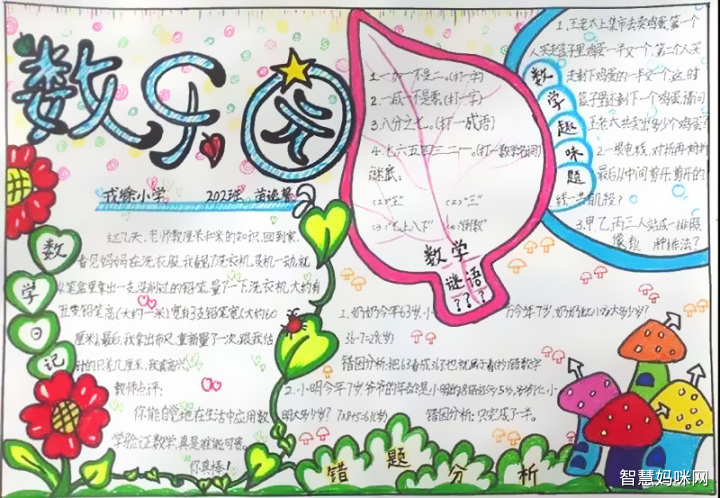 数乐园
戎徐小学 2023班
数学日记
这几天,老师教厘米和米的知识,回到家,
看见妈妈在洗衣服,我看见洗衣机,灵机一动,就
从笔盒里拿出一支没削过的铅笔,量了一下洗衣机,大约有
五支铅笔高(大约一米)宽有3支铅笔宽(大约60
厘米)最后,我拿出布尺,重新量了一次,跟我估
计的只差几厘米,我真高兴
教师点评:
你能自觉地在生活中应用数
学验证数学,真是难能可贵。
你真棒!
1.一加一不是二。(打一字)
2.一减一不是零。(打一字)
3.八分之七。(打一成语)
4.七六五四三二一。(打一数学名词)
谜底:
(1)"王"
(2)"三"
(3)"七上八下"
(4)"倒数"
数学
谜语
???
数学趣味题
1.王老太上集市去卖鸡蛋,第一个
人买走篮子里鸡蛋一半又一个,第二个人买
走剩下鸡蛋的一半又一个,这时
篮子里还剩下一个鸡蛋,请问
王老太共卖出多少个鸡蛋?
2.一根电线,对折再对折
最后从中间剪开,剪开的
线一共几段?
3.甲、乙、丙三人站成一排照
像,有 种排法?
1.奶奶今年63岁,小 今年7岁,奶奶比小 大多少岁?
36-7=29(岁)
错因分析:把63看成36了也就属于看错数字
2.小明今年7岁,爷爷的年龄是小明的8倍还多5岁,爷爷比小
明大多少岁? 7×8+5=61(岁) 错因分析:只完成了一半。
错题分析
智慧妈咪网